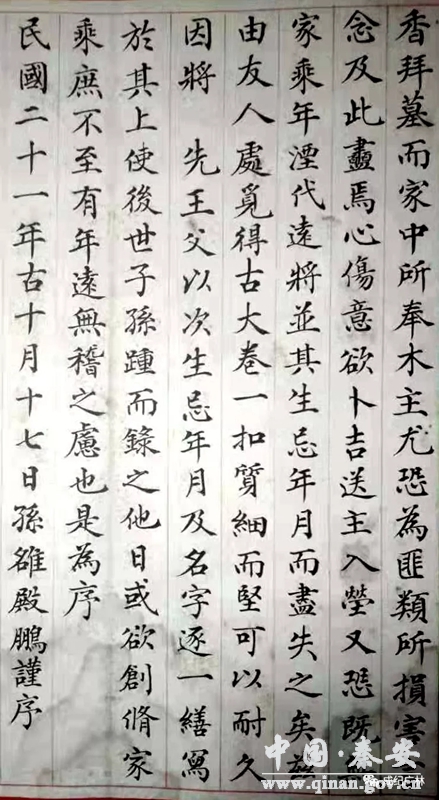 香拜墓而家中所奉木主尤恐為匪類所損害
念及此盡焉心傷意欲卜吉送主入塋又恐既無
家乘年湮代遠將並其生忌年月而盡失之矣茲
由友人處覓得古大卷一扣質細而堅可以耐久
因將 先王父以次生忌年月及名字逐一繕寫
於其上使後世子孫踵而錄之他日或欲創脩家
乘庶不至有年遠無稽之慮也是為序
民國二十一年古十月十七日孫雒殿鵬謹序
中国·秦安
www.qinan.gov.cn
成纪庄林